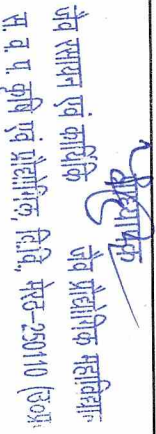 विभागाध्यक्ष
जैव रसायन एवं कार्यिकी
जैव प्रौद्योगिक महाविद्या
स. व. प. कृषि एवं प्रौद्योगिक, वि.वि. मेरठ-250110 (उ०प्र०